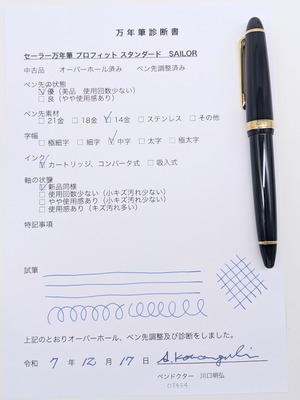 万年筆診断書
セーラー万年筆 プロフィット スタンダード SAILOR
中古品 オーバーホール済み ペン先調整済み
ペン先の状態
☑優（美品 使用回数少ない）
□良（やや使用感あり）
ペン先素材
□21金 □18金 ☑14金 □ステンレス □その他
字幅
□極細字 □細字 ☑中字 □太字 □極太字
インク
☑カートリッジ、コンバータ式 □吸入式
軸の状態
☑新品同様
□使用回数少ない（小キズ汚れ少ない）
□やや使用感あり（小キズ汚れ少ない）
□使用感あり（キズ汚れ多い）
特記事項
試筆
上記のとおりオーバーホール、ペン先調整及び診断をしました。
令和 7 年 12 月 17 日
ペンドクター 川口明弘